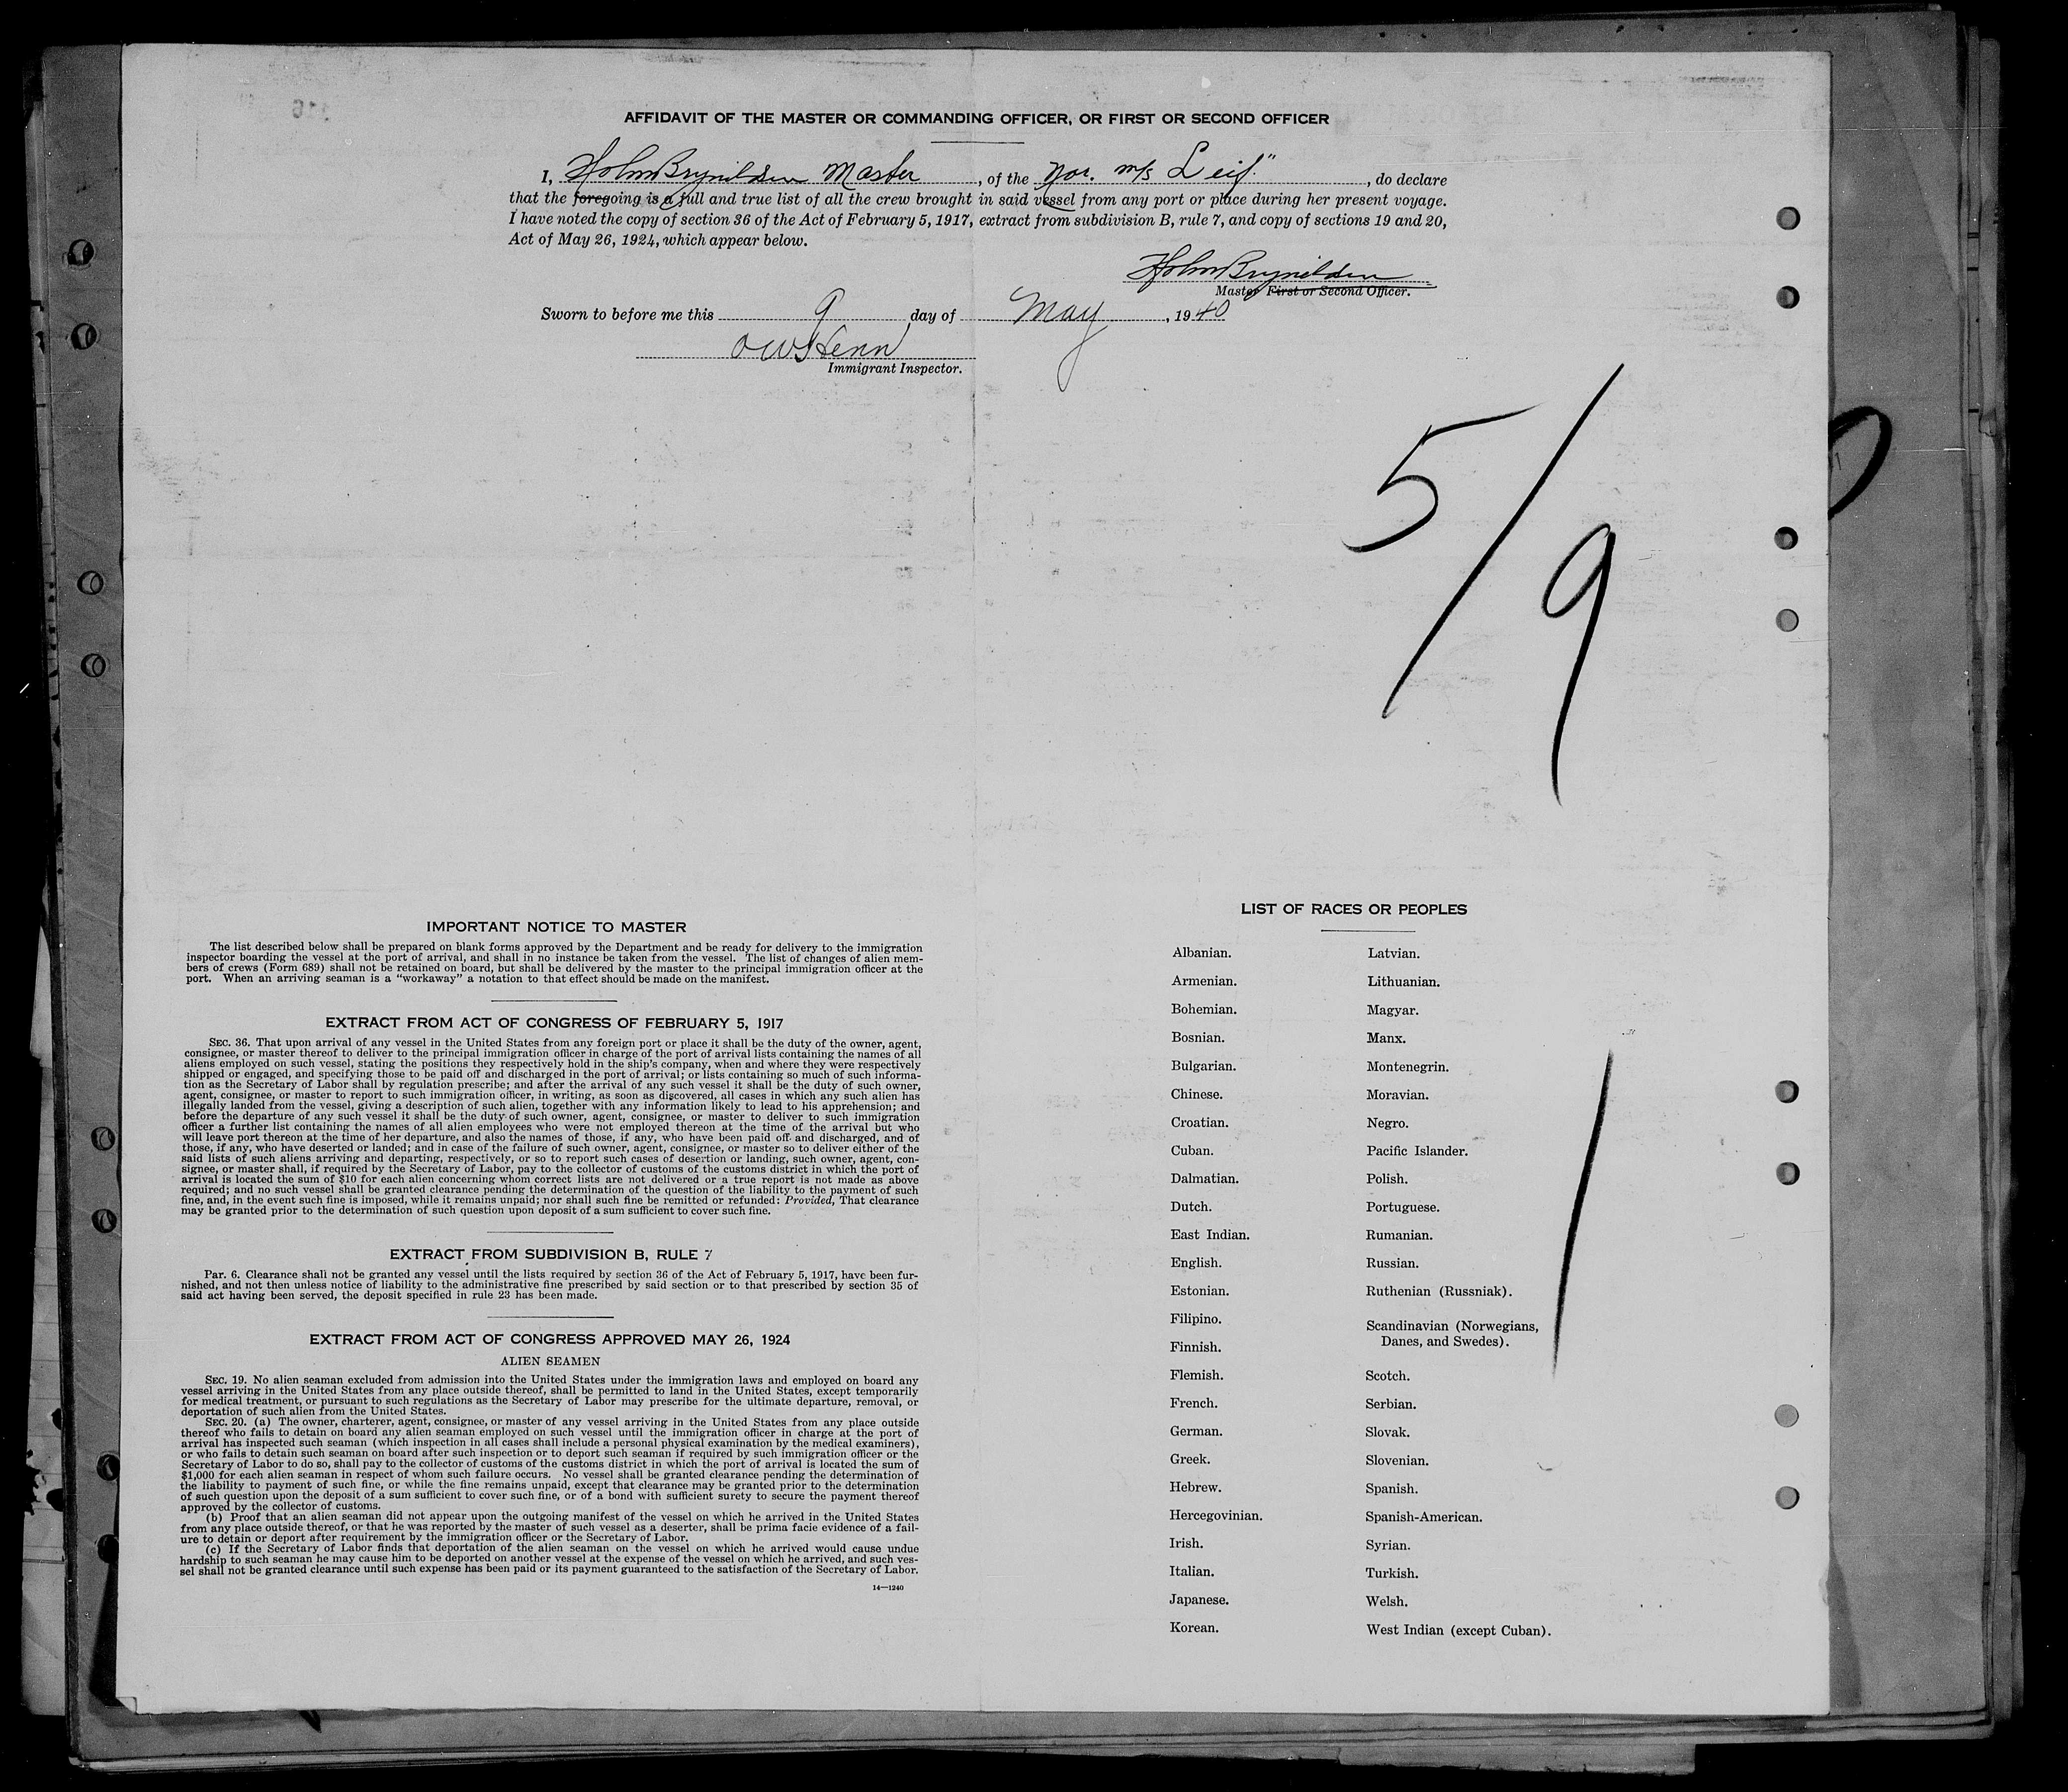 AFFIDAVIT OF THE MASTER OR COMMANDING OFFICER, OR FIRST OR SECOND OFFICER
I, Holm Brynildsen Master, of the Nor. m/s Leif", do declare
that the foregoing is a full and true list of all the crew brought in said vessel from any port or place during her present voyage.
I have noted the copy of section 36 of the Act of February 5, 1917, extract from subdivision B, rule 7, and copy of sections 19 and 20,
Act of May 26, 1924, which appear below.
Holm Brynildsen
Master First or Second Officer.
Sworn to before me this 9 day of May, 1940
Immigrant Inspector.
5/9
IMPORTANT NOTICE TO MASTER
The list described below shall be prepared on blank forms approved by the Department and be ready for delivery to the immigration
inspector boarding the vessel at the port of arrival, and shall in no instance be taken from the vessel. The list of changes of alien mem-
bers of crews (Form 689) shall not be retained on board, but shall be delivered by the master to the principal immigration officer at the
port. When an arriving seaman is a "workaway" a notation to that effect should be made on the manifest.
EXTRACT FROM ACT OF CONGRESS OF FEBRUARY 5, 1917
SEC. 36. That upon arrival of any vessel in the United States from any foreign port or place it shall be the duty of the owner, agent,
consignee, or master thereof to deliver to the principal immigration officer in charge of the port of arrival lists containing the names of all
aliens employed on such vessel, stating the positions they respectively hold in the ship's company, when and where they were respectively
shipped or engaged, and specifying those to be paid off and discharged in the port of arrival; or lists containing so much of such informa-
tion as the Secretary of Labor shall by regulation prescribe; and after the arrival of any such vessel it shall be the duty of such owner,
agent, consignee, or master to report to such immigration officer, in writing, as soon as discovered, all cases in which any such alien has
illegally landed from the vessel, giving a description of such alien, together with any information likely to lead to his apprehension; and
before the departure of any such vessel it shall be the duty of such owner, agent, consignee, or master to deliver to such immigration
officer a further list containing the names of all alien employees who were not employed thereon at the time of the arrival but who
will leave port thereon at the time of her departure, and also the names of those, if any, who have been paid off and discharged, and of
those, if any, who have deserted or landed; and in case of the failure of such owner, agent, consignee, or master so to deliver either of the
said lists of such aliens arriving and departing, respectively, or so to report such cases of desertion or landing, such owner, agent, con-
signee, or master shall, if required by the Secretary of Labor, pay to the collector of customs of the customs district in which the port of
arrival is located the sum of $10 for each alien concerning whom correct lists are not delivered or a true report is not made as above
required; and no such vessel shall be granted clearance pending the determination of the question of the liability to the payment of such
fine, and, in the event such fine is imposed, while it remains unpaid; nor shall such fine be remitted or refunded: Provided, That clearance
may be granted prior to the determination of such question upon deposit of a sum sufficient to cover such fine.
EXTRACT FROM SUBDIVISION B, RULE 7
Par. 6. Clearance shall not be granted any vessel until the lists required by section 36 of the Act of February 5, 1917, have been fur-
nished, and not then unless notice of liability to the administrative fine prescribed by said section or to that prescribed by section 35 of
said act having been served, the deposit specified in rule 23 has been made.
EXTRACT FROM ACT OF CONGRESS APPROVED MAY 26, 1924
ALIEN SEAMEN
SEC. 19. No alien seaman excluded from admission into the United States under the immigration laws and employed on board any
vessel arriving in the United States from any place outside thereof, shall be permitted to land in the United States, except temporarily
for medical treatment, or pursuant to such regulations as the Secretary of Labor may prescribe for the ultimate departure, removal, or
deportation of such alien from the United States.
SEC. 20. (a) The owner, charterer, agent, consignee, or master of any vessel arriving in the United States from any place outside
thereof who fails to detain on board any alien seaman employed on such vessel until the immigration officer in charge at the port of
arrival has inspected such seaman (which inspection in all cases shall include a personal physical examination by the medical examiners),
or who fails to detain such seaman on board after such inspection or to deport such seaman if required by such immigration officer or the
Secretary of Labor to do so, shall pay to the collector of customs of the customs district in which the port of arrival is located the sum of
$1,000 for each alien seaman in respect of whom such failure occurs. No vessel shall be granted clearance pending the determination of
the liability to payment of such fine, or while the fine remains unpaid, except that clearance may be granted prior to the determination
of such question upon the deposit of a sum sufficient to cover such fine, or of a bond with sufficient surety to secure the payment thereof
approved by the collector of customs.
(b) Proof that an alien seaman did not appear upon the outgoing manifest of the vessel on which he arrived in the United States
from any place outside thereof, or that he was reported by the master of such vessel as a deserter, shall be prima facie evidence of a fail-
ure to detain or deport after requirement by the immigration officer or the Secretary of Labor.
(c) If the Secretary of Labor finds that deportation of the alien seaman on the vessel on which he arrived would cause undue
hardship to such seaman he may cause him to be deported on another vessel at the expense of the vessel on which he arrived, and such ves-
sel shall not be granted clearance until such expense has been paid or its payment guaranteed to the satisfaction of the Secretary of Labor.
14—1240
LIST OF RACES OR PEOPLES
Albanian.
Armenian.
Bohemian.
Bosnian.
Bulgarian.
Chinese.
Croatian.
Cuban.
Dalmatian.
Dutch.
East Indian.
English.
Estonian.
Filipino.
Finnish.
Flemish.
French.
German.
Greek.
Hebrew.
Hercegovinian.
Irish.
Italian.
Japanese.
Korean.
Latvian.
Lithuanian.
Magyar.
Manx.
Montenegrin.
Moravian.
Negro.
Pacific Islander.
Polish.
Portuguese.
Rumanian.
Russian.
Ruthenian (Russniak).
Scandinavian (Norwegians,
Danes, and Swedes).
Scotch.
Serbian.
Slovak.
Slovenian.
Spanish.
Spanish-American.
Syrian.
Turkish.
Welsh.
West Indian (except Cuban).